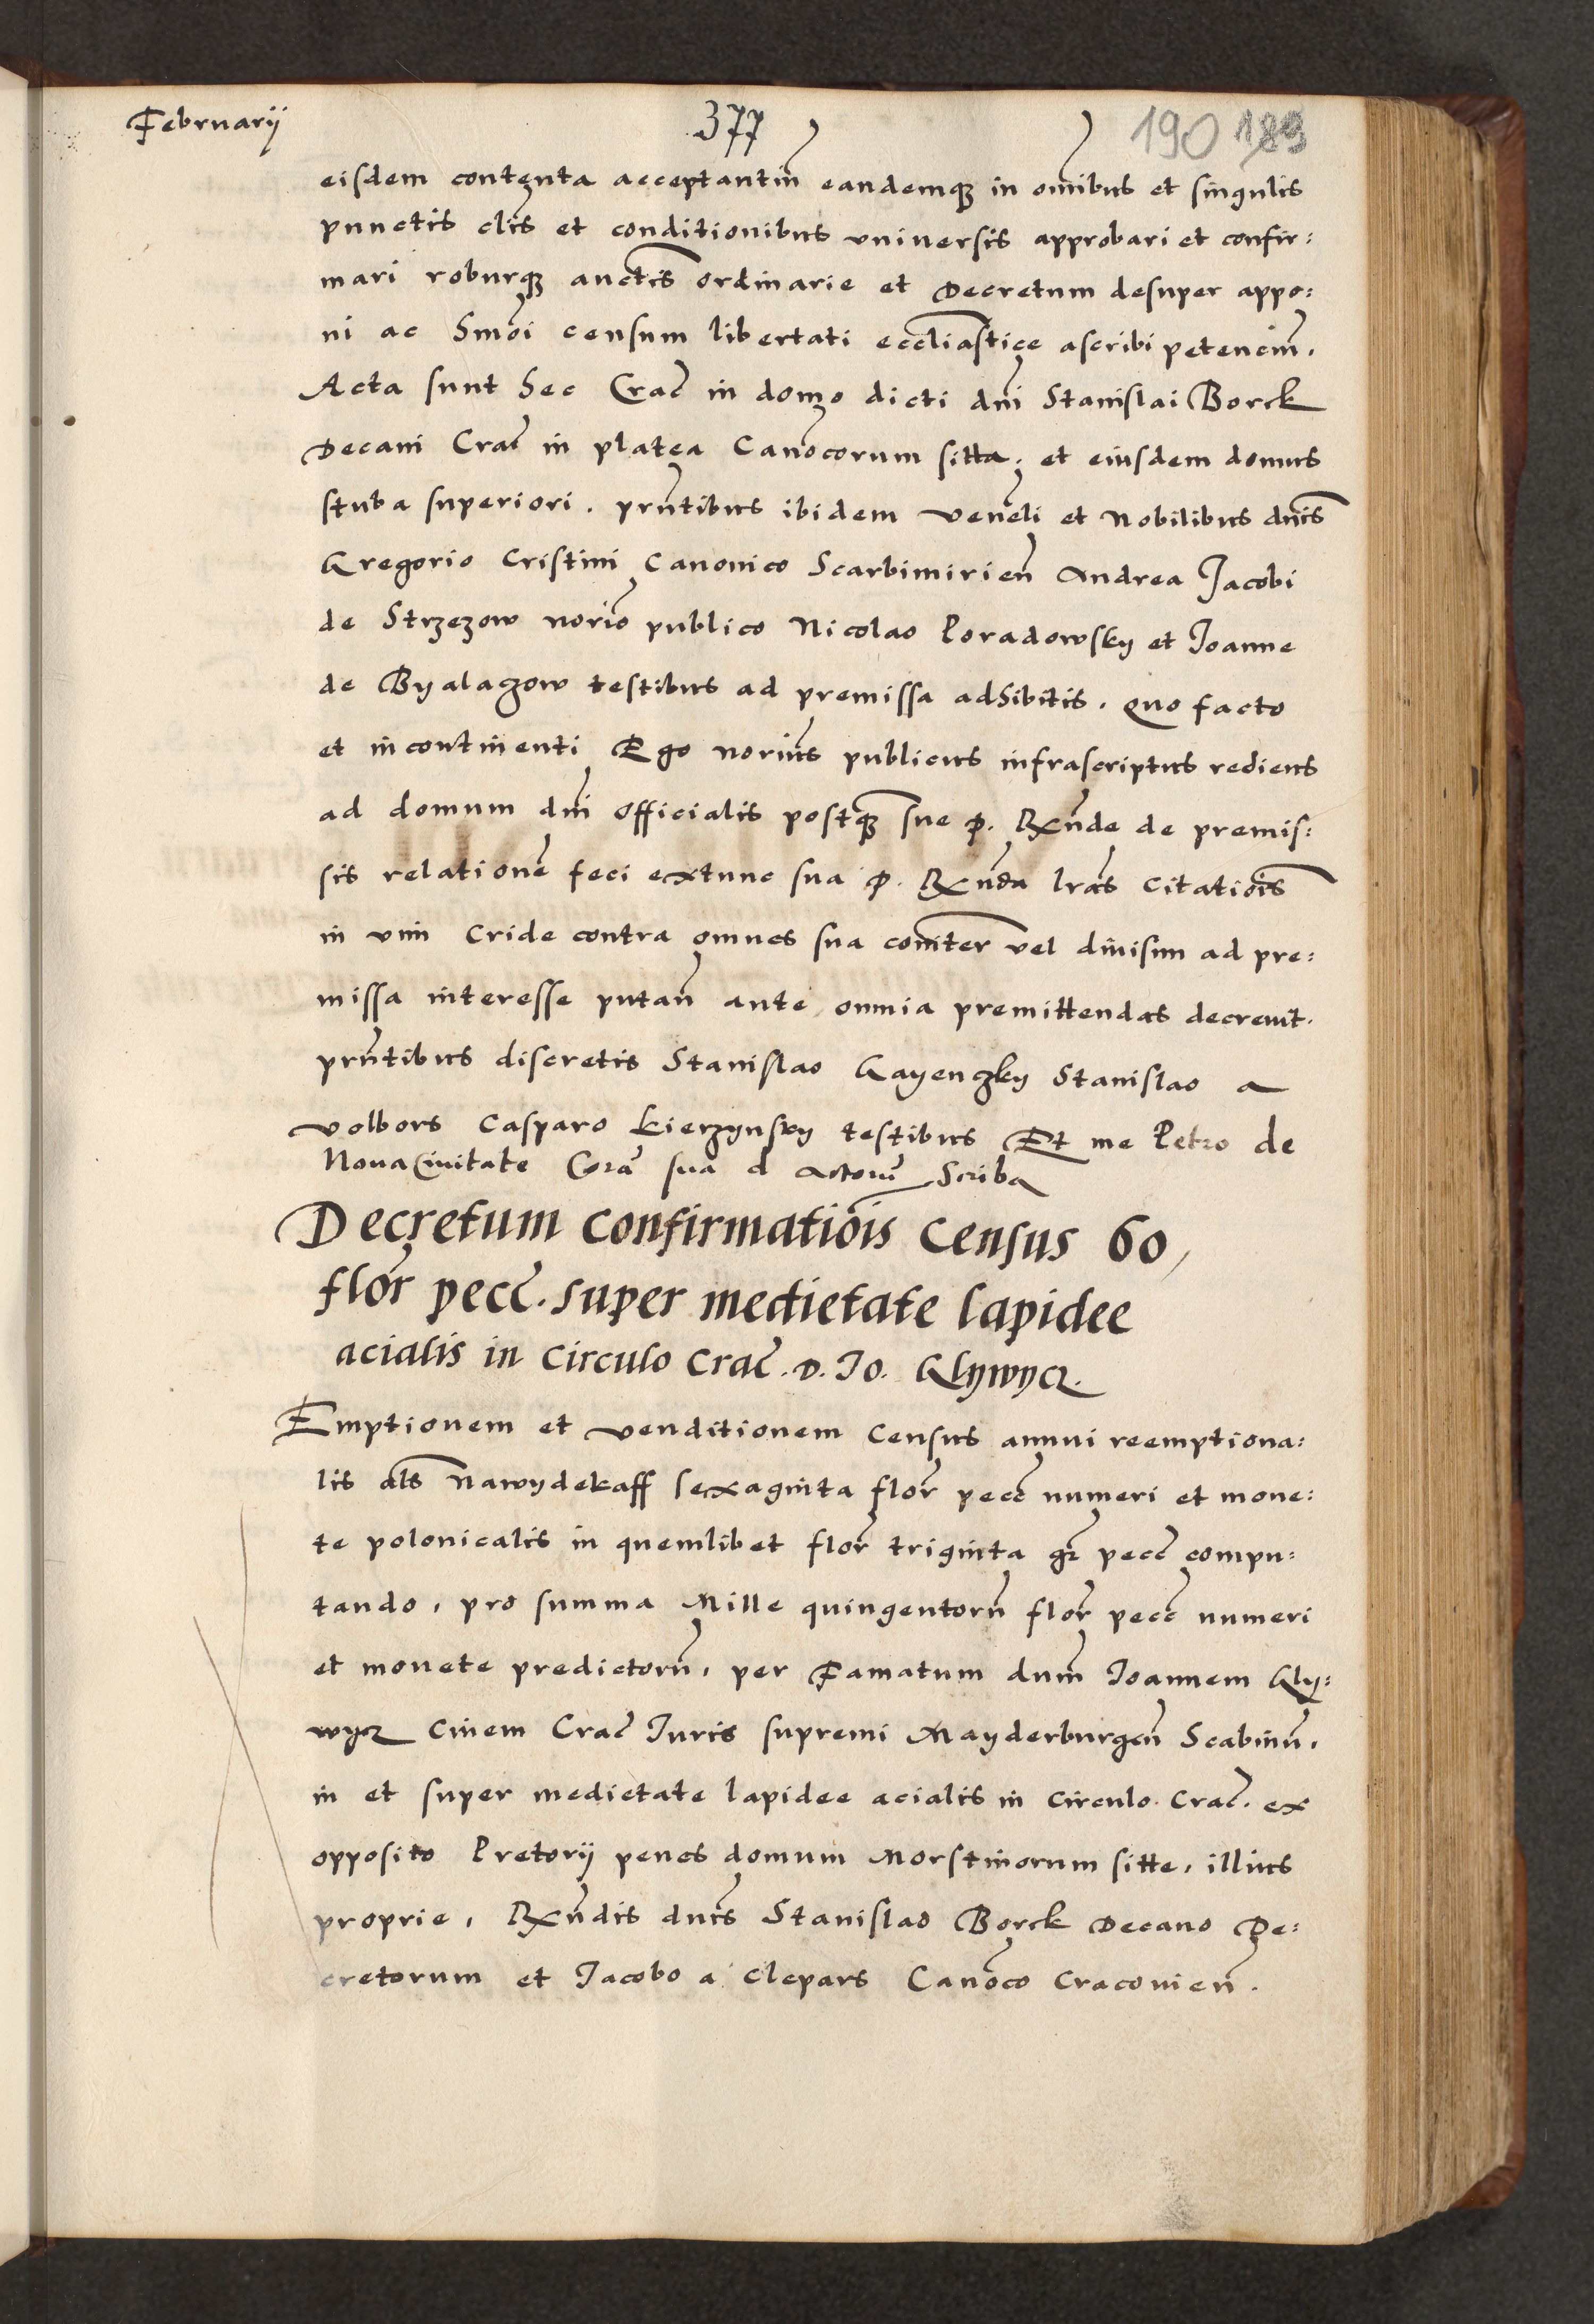 Februarij
377
190 189
eisdem contenta acceptantiu͂ eandemq; in om͂ibus et singulis
punctis cl͂is et conditionibus vniuersis approbari et confir:
mari roburq; auct͂is ordinarie et Decretum desuper appo:
ni ac hm͂oi censum libertati eccl͂iastice ascribi petenciu͂.
Acta sunt hec Crac͂ in domo dicti dn͂i Stanislai Borck
Decani Crac͂ in platea Cano͂corum sitta, et eiusdem domus
stuba superiori. prn͂tibus ibidem Venel͂i et Nobilibus dn͂is
Gregorio Cristini Canonico Scarbimirien͂ Andrea Jacobi
de Strzezow nori͂o publico Nicolao Poradowsky et Joanne
de Byalaczow testibus ad premissa adhibitis. Quo facto
et incontinenti Ego nori͂us publicus infrascriptus rediens
ad domum dn͂i Officialis postq͂; sue p. Rn͂de de premis:
sis relatione͂ feci extunc sua p. Rn͂da lr͂as Citatio͂is
in vim Cride contra omnes sua com͂iter vel diuisim ad pre:
missa interesse putan͂ ante omnia premittendas decreuit.
prn͂tibus discretis Stanislao Gayenczky Stanislao a
volbors Casparo Kierzynsky testibus Et me Petro de
Noua Ciuitate Cora͂ sua d Actoru͂ Scriba
Decretum Confirmatio͂is Census 60
flor͂ pecc͂. super medietate lapidee
acialis in Circulo Crac͂. D. Jo. Glywycz.
Emptionem et Venditionem Census annui reemptiona:
lis al͂s Nawydekaff sexaginta flor͂ pecc͂ numeri et mone:
te polonicalis in quemlibet flor͂ triginta gr͂ pecc͂ compu:
tando, pro summa Mille quingentoru͂ flor͂ pecc͂ numeri
et monete predictoru͂, per Famatum dn͂um Joannem Gly:
wycz Ciuem Crac͂ Juris supremi Mayderburgen͂ Scabinu͂,
in et super medietate lapidee acialis in Circulo Crac͂. ex
opposito Pretorij penes domum Morstinorum sitte, illius
proprie, Rn͂dis dn͂is Stanislao Borck Decano De:
cretorum et Jacobo a Clepars Cano͂co Cracouien͂.